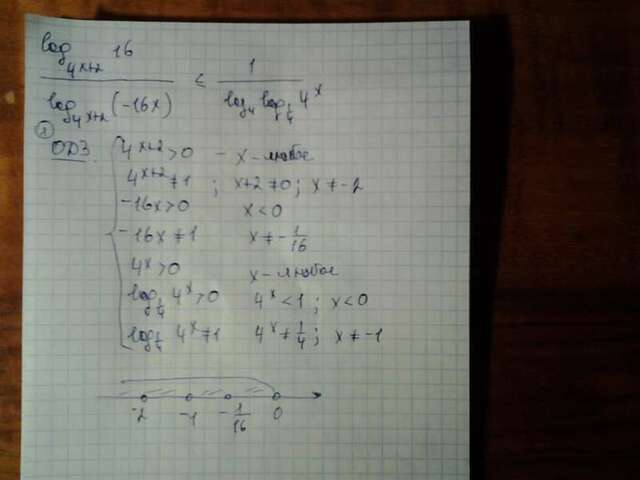 log_{4^{x+2}} 16 / log_{4^{x+2}} (-16x) ≤ 1 / log_4 log_{1/4} 4^x
① ОДЗ.
4^{x+2} > 0 – x – любое
4^{x+2} ≠ 1 ; x+2 ≠ 0 ; x ≠ -2
-16x > 0 x < 0
-16x ≠ 1 x ≠ -1/16
4^x > 0 x – любое
log_{1/4} 4^x > 0 4^x < 1 ; x < 0
log_{1/4} 4^x ≠ 1 4^x ≠ 1/4 ; x ≠ -1
-2 -1 -1/16 0